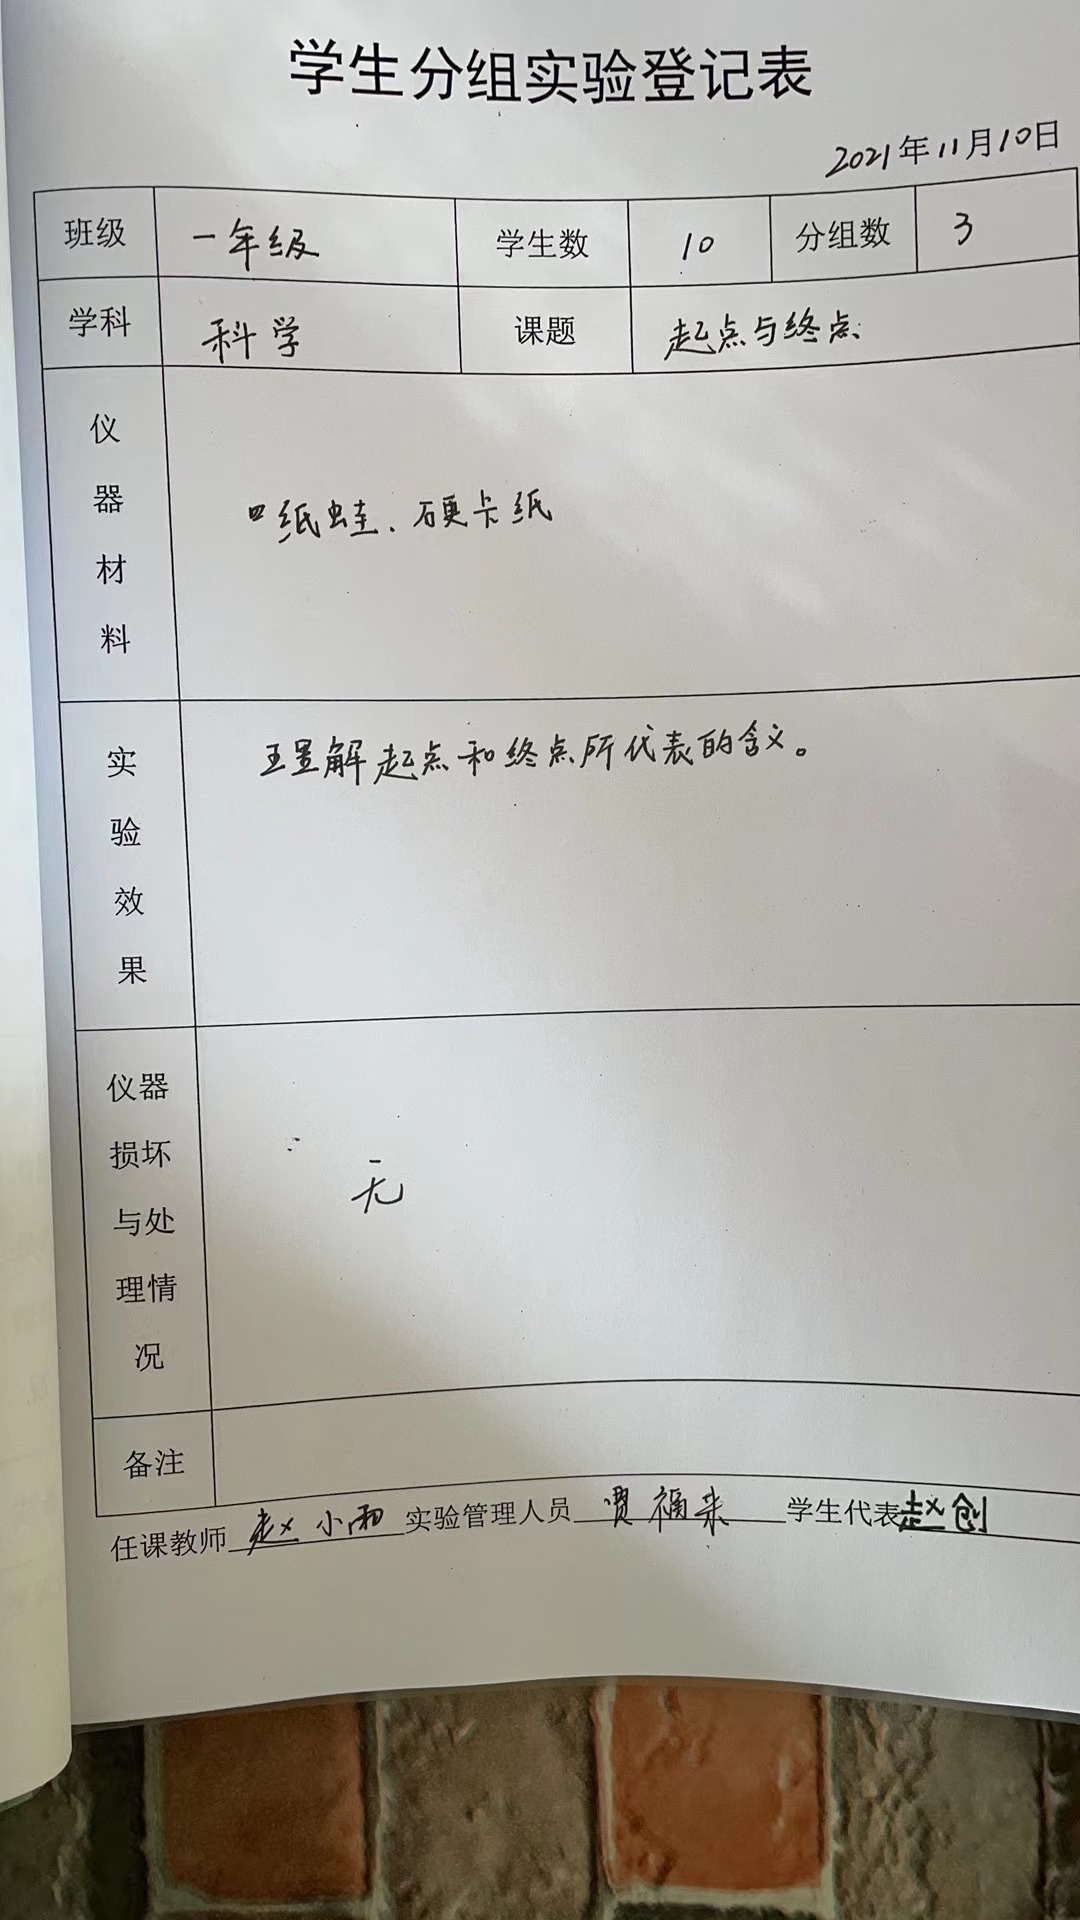 学生分组实验登记表
2021年11月10日
班级 一年级 学生数 10 分组数 3
学科 科学 课题 起点与终点
仪器材料 纸蛙、硬卡纸
实验效果 理解起点和终点所代表的含义。
仪器
损坏
与处
理情
况
无
备注
任课教师 赵小雨 实验管理人员 贾福来 学生代表 赵创